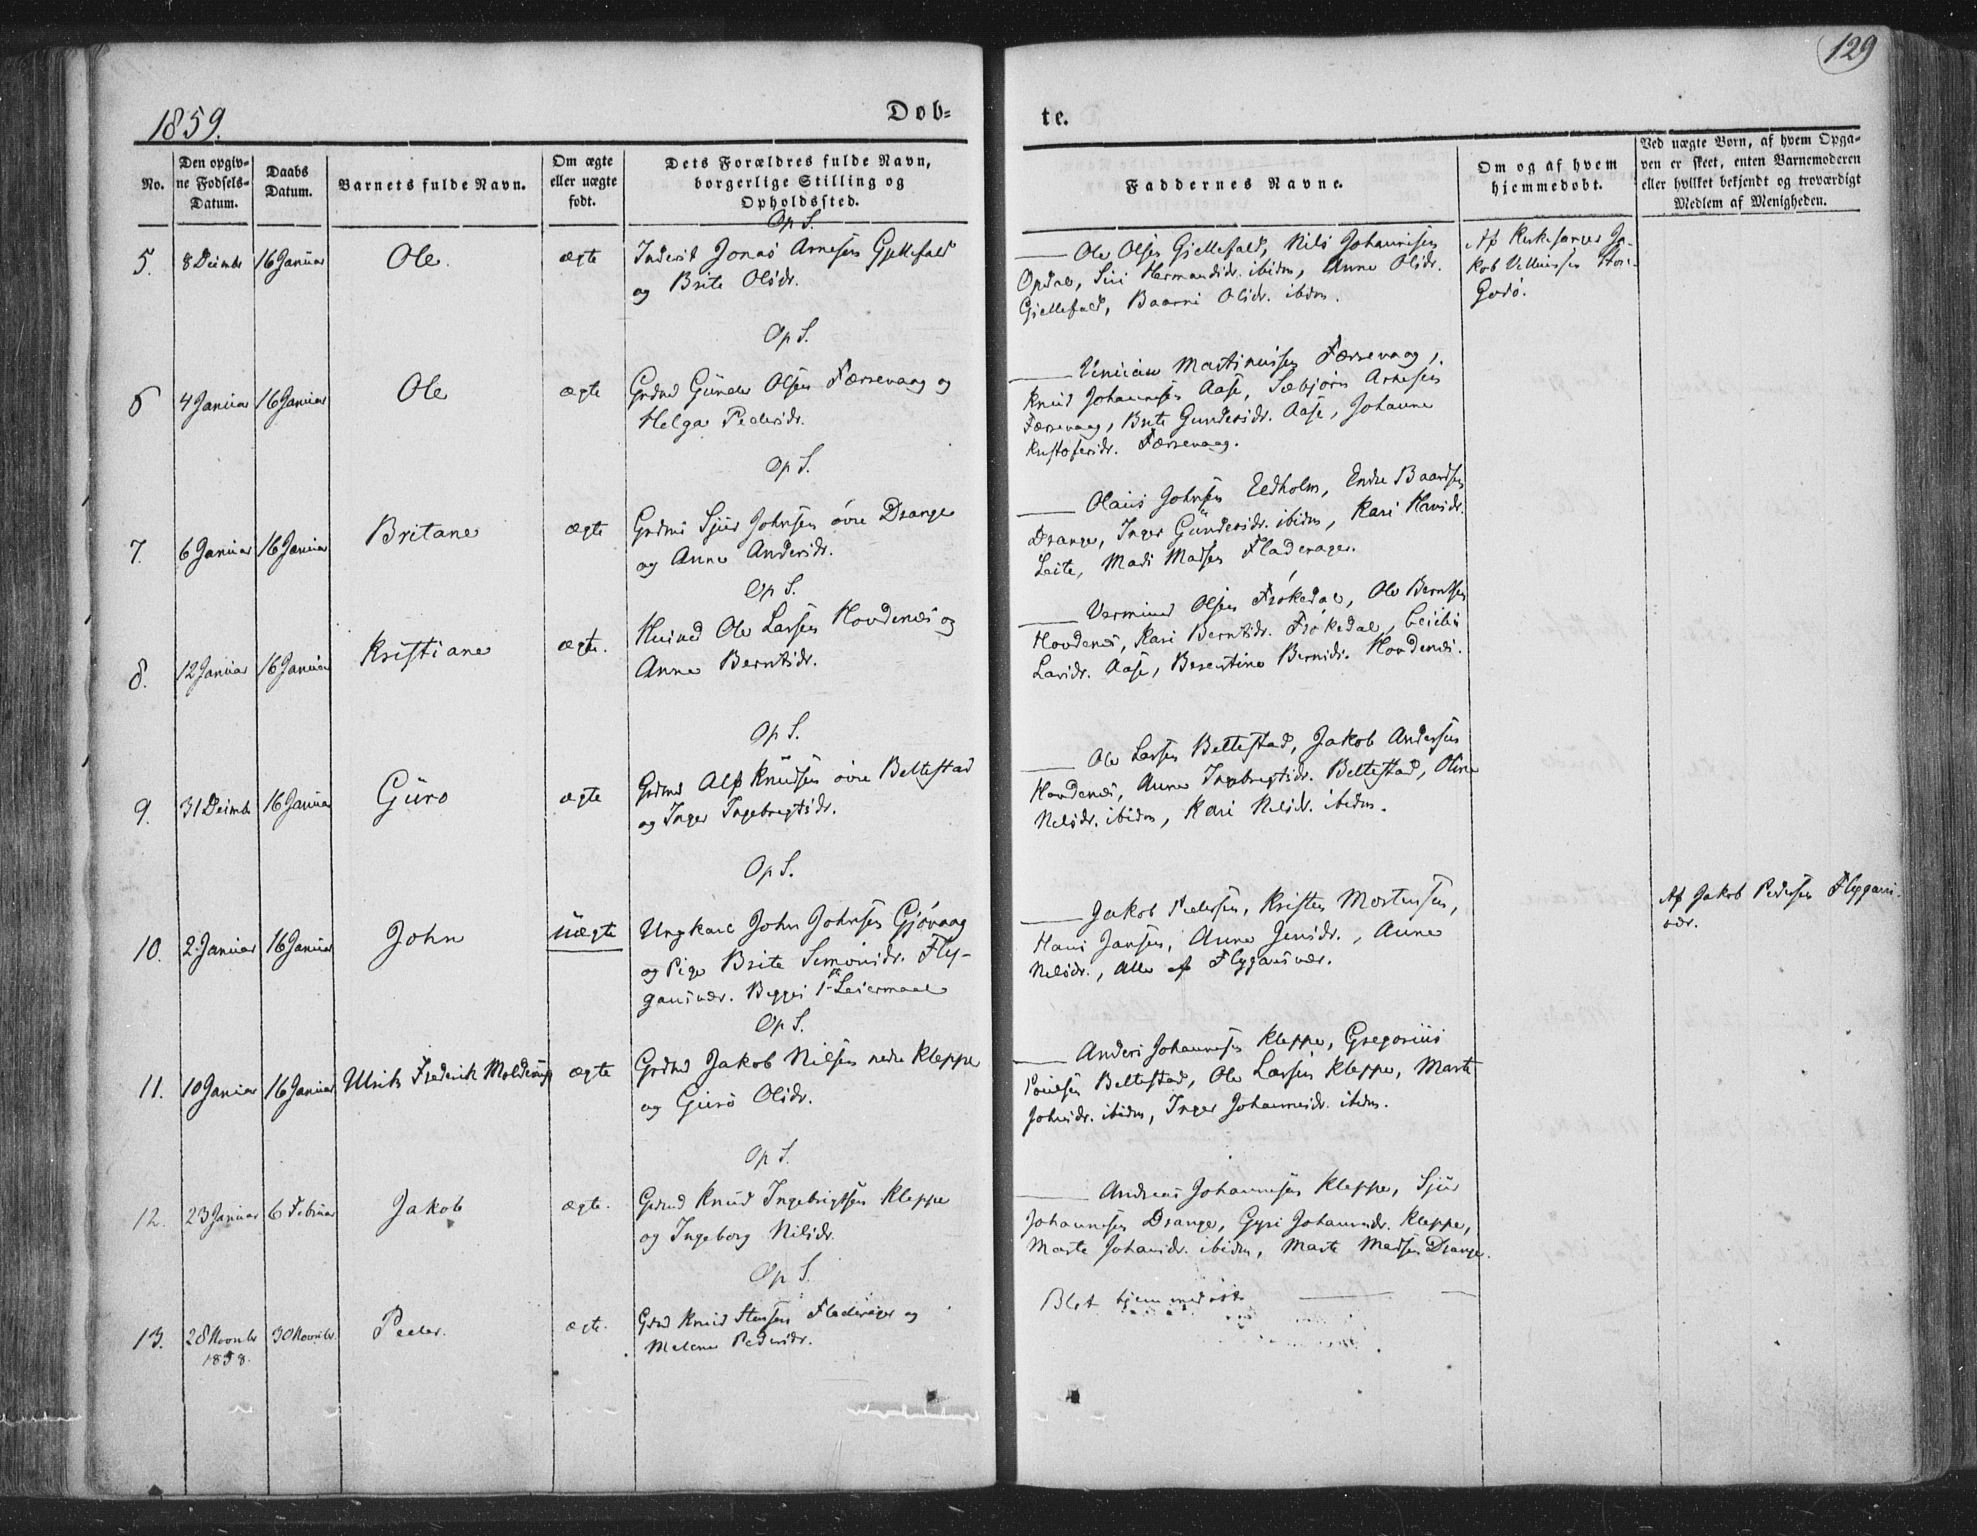 129
1859.
Døb=
te.
No.
Den opgiv=
ne Fødsels=
Datum.
Daabs
Datum.
Barnets fulde Navn.
Om ægte
eller uægte
født.
Dets Forældres fulde Navn,
borgerlige Stilling og
Opholdssted.
Faddernes Navne.
Om og af hvem
hjemmedøbt.
Ved uægte Børn, af hvem Opga=
ven er skeet, enten Barnemoderen
eller hvilket bekjendt og troværdigt
Medlem af Menigheden.
Op S.
5. 8 Decmbr 16 Januar Ole. ægte
Inderst Jonas Arnesen Gjellefald
og Brite Olsdr.
Ole Olsen Gjellefald, Nils Johannesen
Opdal, Siri Hermandsdr. ibidm, Anne Olsdr.
Gjellefald, Baarni Olsdr. ibidm.
Af Kirkesanger Ja-
kob Stor-
Godø.
Op S.
6 4 Januar 16 Januar Ole ægte
Grdmd Gunder Olsen Færsevaag og
Helga Pedersdr.
Martinusen Færsevaag,
Knud Johannesen Aase, Sæbjørn Arnesen
Færsevaag, Brite Gundersdr. Aase, Johanne
Kristofersdr. Færsevaag.
Op S.
7. 6 Januar 16 Januar Britane ægte
Grdmd Sjur Johnsen øvre Drange
og Anne Andersdr.
Olaus Johnsen Eedholm, Endre Baardsen
Drange, Inger Gundersdr. ibidm, Kari Hansdr.
Leite, Mads Madsen Fladerager.
Op S.
8. 12 Januar 16 Januar Kristiane ægte.
Husmd Ole Larsen Hovdenes og
Anne Berntsdr.
Vermund Olsen Frøkedal, Ole Berntsen
Hovdenes, Kari Berntsdr. Frøkedal,
Larsdr. Aase, Berentine Berntsdr. Hovdenes.
Op S.
9. 31 Decmbr 16 Januar Guro ægte
Grdmd Alf Knudsen øvre Beltestad
og Inger Ingebregtsdr.
Ole Larsen Beltestad, Jakob Andersen
Hovdenes, Anne Ingebregtsdr. Beltestad, Oline
Nelsdr. ibidm, Kari Nelsdr. ibidm.
Op S.
10. 2 Januar 16 Januar John uægte
Ungkarl John Johnsen Gjøvaag
og Pige Brite Simonsdr. Fly-
gansvær. Begges 1ste Leiermaal
Jakob Pedersen, Kristen Mortensen,
Hans Jansen, Anne Jensdr., Anne
Nelsdr., Alle af Flygansvær.
Af Jakob Pedersen Flygans-
vær.
Op S.
11. 10 Januar 16 Januar Ulrik Frederik Moldrup ægte
Grdmd Jakob Nilsen nedre Kleppe
og Guro Olsdr.
Anders Johannesen Kleppe, Gregorius
Poulsen Beltestad, Ole Larsen Kleppe, Marte
Johnsdr. ibidm, Inger Johannesdr. ibidm.
Op S.
12. 23 Januar 6 Februar Jakob ægte.
Grdmd Knud Ingebrigtsen Kleppe
og Ingeborg Nilsdr.
Andreas Johannesen Kleppe, Sjur
Johannesen Drange, Gyri Johannesdr. Kleppe,
Marte Johansdr. ibidm, Marte Madsen Drange.
Op S.
13. 28 Novmbr 30 Novmbr. Peder. ægte.
1858.
Grdmd Knud Stensen Fladerager og
Malene Pedersdr.
Blot hjemmedøbt